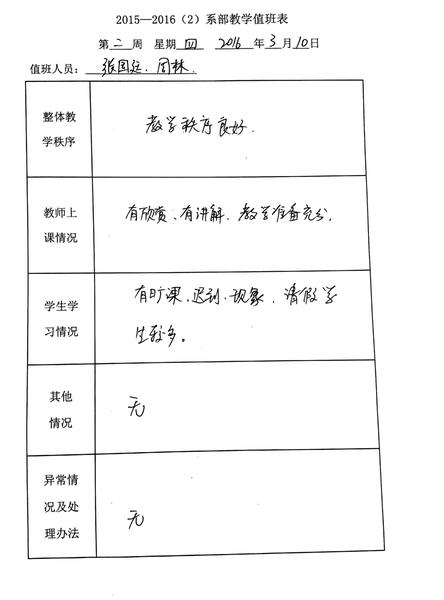 2015—2016（2）系部教学值班表
第 二 周 星期 四 2016 年 3 月 10 日
值班人员： 张国廷、周林.
整体教
学秩序
教学秩序良好.
教师上
课情况
有欣赏、有讲解、教学准备充分,
学生学
习情况
有旷课、迟到、现象、请假学
生较多。
其他
情况
无
异常情
况及处
理办法
无